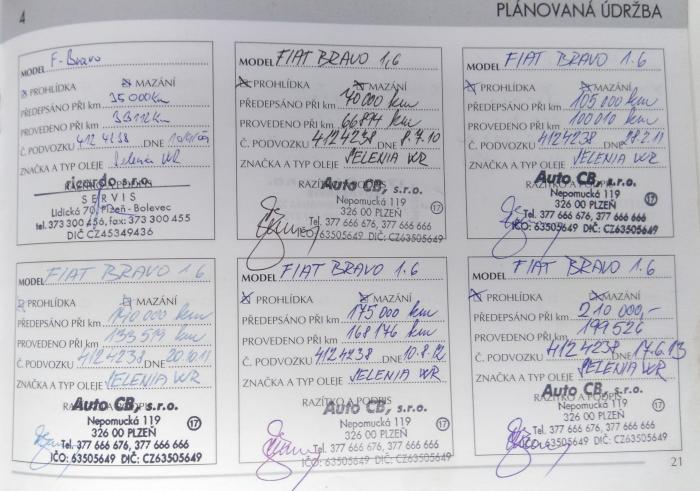 4
PLÁNOVANÁ ÚDRŽBA
MODEL F-Bravo
PROHLÍDKA MAZÁNÍ
PŘEDEPSÁNO PŘI km 35 000 km
PROVEDENO PŘI km
Č. PODVOZKU 4124238 DNE
ZNAČKA A TYP OLEJE Selenia WR
ricardo s.r.o.
SERVIS
Lidická 70, Plzeň - Bolevec
tel. 373 300 456, fax: 373 300 455
DIČ CZ45349436
MODEL FIAT BRAVO 1,6
PROHLÍDKA MAZÁNÍ
PŘEDEPSÁNO PŘI km 70 000 km
PROVEDENO PŘI km 66874 km
Č. PODVOZKU 4124238 DNE 8.7.10
ZNAČKA A TYP OLEJE SELENIA WR
RAZÍTKO A PODPIS
Auto CB, s.r.o.
Nepomucká 119
326 00 PLZEŇ 17
Tel. 377 666 676, 377 666 666
IČO: 63505649 DIČ: CZ63505649
MODEL FIAT BRAVO 1.6
PROHLÍDKA MAZÁNÍ
PŘEDEPSÁNO PŘI km 105 000 km
PROVEDENO PŘI km 100 010 km
Č. PODVOZKU 4124238 DNE 28.2.11
ZNAČKA A TYP OLEJE SELENIA WR
RAZÍTKO A PODPIS
Auto CB, s.r.o.
Nepomucká 119
326 00 PLZEŇ 17
Tel. 377 666 676, 377 666 666
IČO: 63505649 DIČ: CZ63505649
MODEL FIAT BRAVO 1.6
PROHLÍDKA MAZÁNÍ
PŘEDEPSÁNO PŘI km 140 000 km
PROVEDENO PŘI km 133 519 km
Č. PODVOZKU 4124238 20.10.11
ZNAČKA A TYP OLEJE SELENIA WR
RAZÍTKO A PODPIS
Auto CB, s.r.o.
Nepomucká 119
326 00 PLZEŇ 17
Tel. 377 666 676, 377 666 666
IČO: 63505649 DIČ: CZ63505649
MODEL FIAT BRAVO 1.6
PROHLÍDKA MAZÁNÍ
PŘEDEPSÁNO PŘI km 175 000 km
PROVEDENO PŘI km 168 176 km
Č. PODVOZKU 4124238 DNE 10.8.12
ZNAČKA A TYP OLEJE SELENIA WR
RAZÍTKO A PODPIS
Auto CB, s.r.o.
Nepomucká 119
326 00 PLZEŇ 17
Tel. 377 666 676, 377 666 666
IČO: 63505649 DIČ: CZ63505649
MODEL FIAT BRAVO 1.6
PROHLÍDKA MAZÁNÍ
PŘEDEPSÁNO PŘI km 210 000,-
PROVEDENO PŘI km 199526
Č. PODVOZKU 4124238 DNE 17.6.13
ZNAČKA A TYP OLEJE SELENIA WR
RAZÍTKO A PODPIS
Auto CB, s.r.o.
Nepomucká 119
326 00 PLZEŇ 17
Tel. 377 666 676, 377 666 666
IČO: 63505649 DIČ: CZ63505649
21